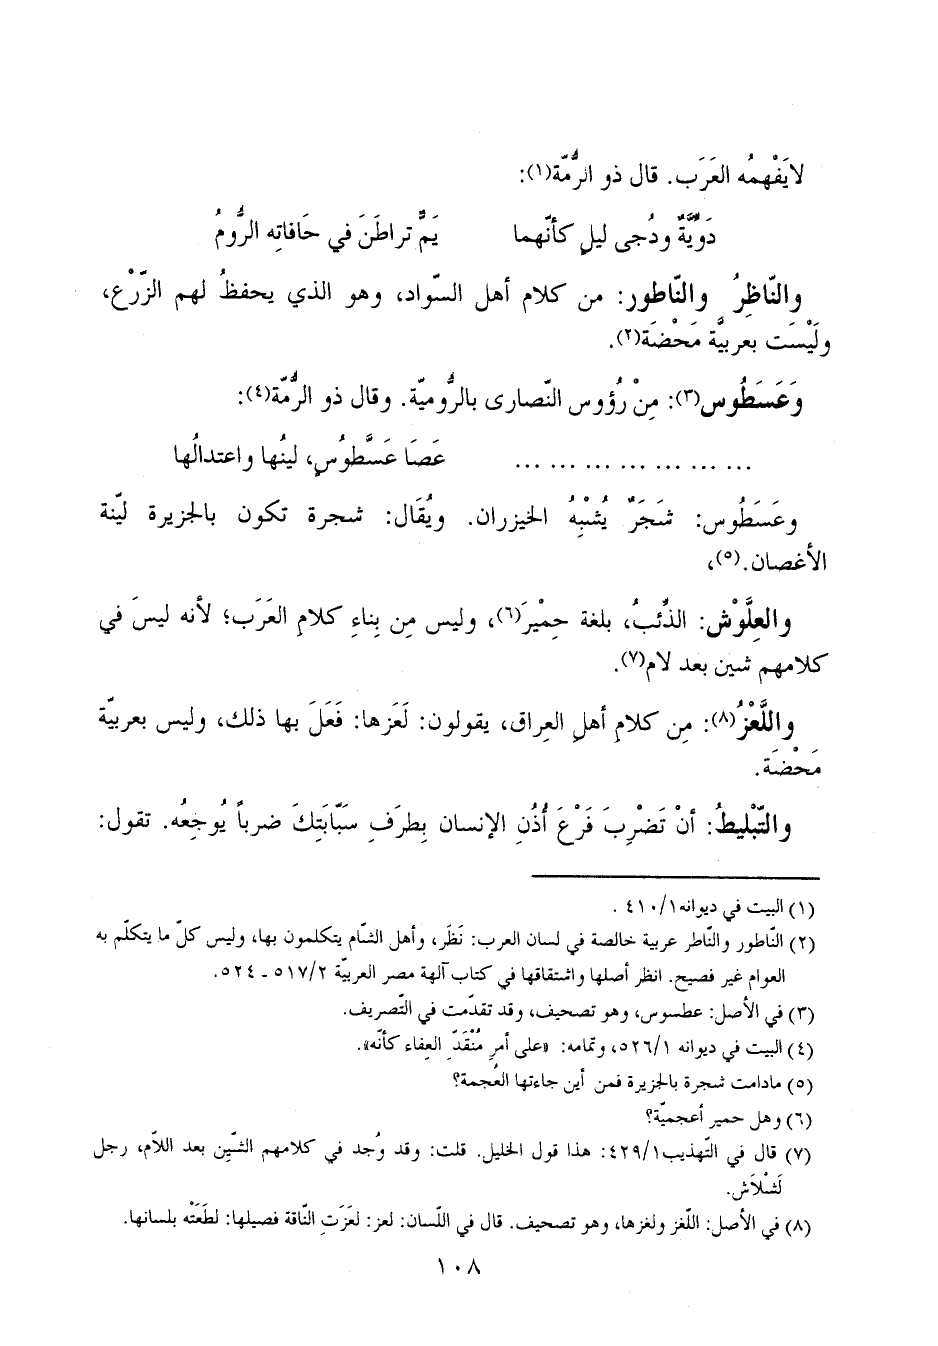 لايَفْهمُه العَرَب. قال ذو الرُّمّة(١):
دَوِّيَّةٌ ودُجى ليلٍ كأنّهما يَمٌّ تراطَنَ في حَافاتِه الرُّومُ
والنّاظِرُ والنّاطور: من كلام أهل السّواد، وهو الذي يحفظُ لهم الزّرْع،
ولَيْسَت بعربيَّة مَحْضَة(٢).
وَعَسَطُوس(٣): مِنْ رُؤوس النّصارى بالرُّوميّة. وقال ذو الرُّمّة(٤):
... ... ... ... ... ... ... عَصَا عَسَّطوُسٍ، لينُها واعتدالُها
وعَسَطُوس: شَجَرٌ يُشْبِهُ الخيزران. ويُقَال: شجرة تكون بالجزيرة ليّنة
الأغصان.(٥)،
والعِلَّوْش: الذِّئبُ، بلغة حِمْيَر(٦)، وليس مِن بِناءِ كلامِ العَرَب؛ لأنه ليسَ في
كلامهم شين بعد لام(٧).
واللَّعْزُ(٨): مِن كلامِ أهلِ العِراق، يقولون: لَعَزها: فَعَلَ بها ذلك، وليس بعربيّة
مَحْضَة.
والتّبْليطُ: أنْ تَضْرِبَ فَرْعَ أُذُنِ الإنسان بِطرَفِ سَبّابَتِكَ ضرباً يُوجِعُه. تقول:
(١) البيت في ديوانه ٤١٠/١ .
(٢) النّاطور والنّاطر عربية خالصة في لسان العرب: نَظَر، وأهل الشّام يتكلمون بها، وليس كلّ ما يتكلّم به
العوام غير فصيح. انظر أصلها واشتقاقها في كتاب آلهة مصر العربيّة ٥١٧/٢ - ٥٢٤.
(٣) في الأصل: عطسوس، وهو تصحيف، وقد تقدّمت في التّصريف.
(٤) البيت في ديوانه ٥٢٦/١، وتمامه: «على أمرِ مُنْقَدّ العِفاء كأنّه».
(٥) مادامت شجرة بالجزيرة فمن أين جاءتها العُجمة؟
(٦) وهل حمير أعجميّة؟
(٧) قال في التّهذيب ٤٢٩/١: هذا قول الخليل. قلت: وقد وُجد في كلامهم الشّين بعد اللاّم، رجل
لَشْلاَش.
(٨) في الأصل: اللّغز ولغزها، وهو تصحيف. قال في اللّسان: لعز: لعَزَتِ النّاقة فصيلها: لطَعَتْه بلسانها.
١٠٨